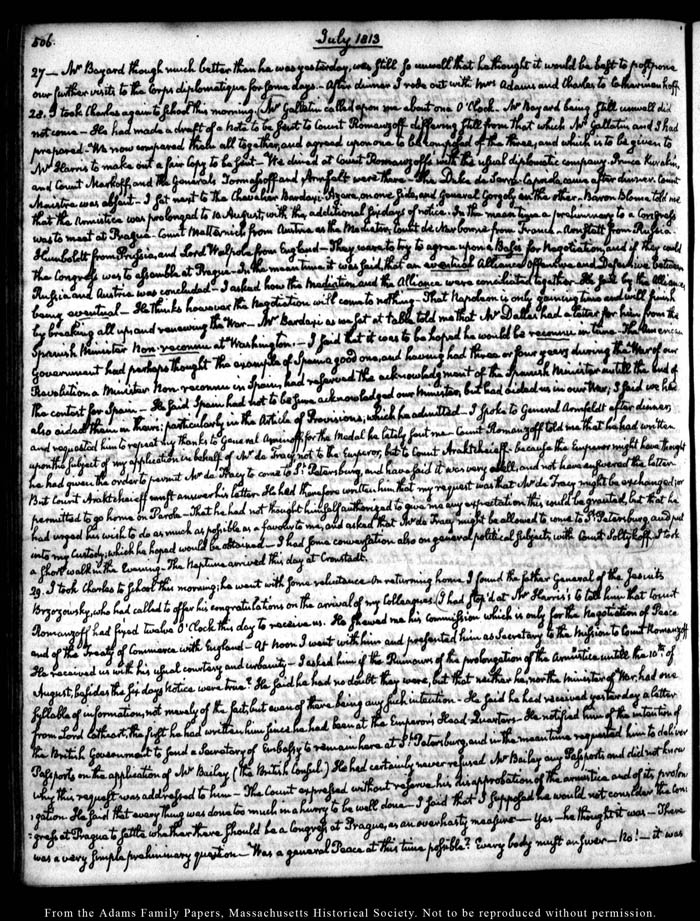 506.
July 1813
27— Mr Bayard though much better than he was yesterday, was still so unwell that he thought it would be best to postpone
our further visits to the Corps diplomatique for some days— After dinner I rode out with Mrs Adams and Charles to Catharinenhoff.
28. I took Charles again to School this morning. Mr Gallatin called upon me about one O'Clock. Mr Bayard being still unwell did
not come— He had made a draft of a Note to be sent to Count Romanzoff differing still from that which Mr Gallatin and I had
prepared— We now compared them all together, and agreed upon one to be composed of the three; and which is to be given to
Mr Harris to make out a fair Copy to be sent— We dined at Count Romanzoff's with the usual diplomatic company. Prince Kurakin,
and Count Markoff, and the Generals Tormassoff and Armfelt were there— The Duke de Serra-Capriola came after dinner. Count
Maistre was absent— I sat next to the Chevalier Bardaxi-Azara, on one side, and General Gorgoly on the other. Baron Blome, told me
that the Armistice was prolonged to 10. August, with the additional six days of notice. In the mean time a preliminary to a Congress
was to meet at Prague— Count Metternich from Austria as the Mediator, Count de Narbonne from France— Anstett from Russia
Humboldt from Prussia, and Lord Walpole from England— They were to try to agree upon a Basis for Negotiation, and if they could
the Congress was to assemble at Prague— In the mean time it was said, that an eventual Alliance Offensive and Defensive between
Russia and Austria was concluded— I asked how the Mediation, and the Alliance were conciliated together— He said by the Alliance
being eventual— He thinks however the Negotiation will come to nothing— That Napoleon is only gaining time and will finish
by breaking all up, and renewing the War— Mr Bardaxi as we sat at table told me that Mr Dallas had a letter for him from the
Spanish Minister Non-reconnu at Washington.— I said that it was to be hoped he would be reconnu in time— The American
Government had perhaps thought the example of Spain a good one, and having had three or four years during the War of our
Revolution a Minister Non-reconnu in Spain, had reserved the acknowledgment of the Spanish Minister until the end of
the contest for Spain— He said Spain had not to be sure acknowledged our Minister, but had aided us in our War; I said we had
also aided them in theirs; particularly in the Article of Provisions; which he admitted— I spoke to General Armfeldt after dinner;
and requested him to repeat my thanks to General Aminoff, for the Medal he lately sent me— Count Romanzoff told me that he had written
upon the subject of my application in behalf of Mr de Tracy not to the Emperor, but to Count Araktcheieff— because the Emperor might have thought
he had given the order to permit Mr de Tracy to come to St Petersburg, and have said it was very well, and not have answered the letter.
But Count Araktcheieff must answer his letter. He had therefore written him that my request was that Mr de Tracy might be exchanged; or
permitted to go home on Parole— That he had not thought himself authorized to give me any expectation this could be granted, but that he
had urged his wish to do as much as possible as a favour to me, and asked that Mr de Tracy might be allowed to come to St Petersburg, and put
into my Custody; which he hoped would be obtained— I had some conversation also on general political subjects with Count Soltykoff. I took
a short walk in the Evening— The Neptune arrived this day at Cronstadt.
29. I took Charles to School this morning; he went with some reluctance. On returning home I found the father General of the Jesuits
Brzozowsky, who had called to offer his congratulations on the arrival of my Colleagues. I had stop'd at Mr Harris's to tell him that Count
Romanzoff had fixed twelve O'Clock this day to receive us. He shewed me his Commission which is only for the Negotiation of Peace
and of the Treaty of Commerce with England— At Noon I went with him and presented him as Secretary to the Mission to Count Romanzoff
He received us with his usual courtesy and urbanity— I asked him if the Rumours of the prolongation of the Armistice until the 10th of
August, besides the six days notice were true? He said he had no doubt they were, but that neither he, nor the Minister of War, had one
syllable of information; not merely of the fact, but even of there being any such intention— He said he had received yesterday a letter
from Lord Cathcart, the first he had written him since he had been at the Emperor's Head-Quarters— He notified him of the intention of
the British Government to send a Secretary of Embassy to remain here at St Petersburg, and in the mean time requested him to deliver
Passports on the application of Mr Bailey (the British Consul) He had certainly never refused Mr Bailey any Passports and did not know
why this request was addressed to him— The Count expressed without reserve his disapprobation of the armistice and of its prolon-
gation. He said that every thing was done too much in a hurry to be well done— I said that I supposed he would not consider the Con-
gress at Prague to settle whether there should be a Congress at Prague, as an over hasty measure— Yes— he thought it was— There
was a very simple preliminary question— Was a general Peace at this time possible? Every body must answer— No!— it was
From the Adams Family Papers, Massachusetts Historical Society. Not to be reproduced without permission.